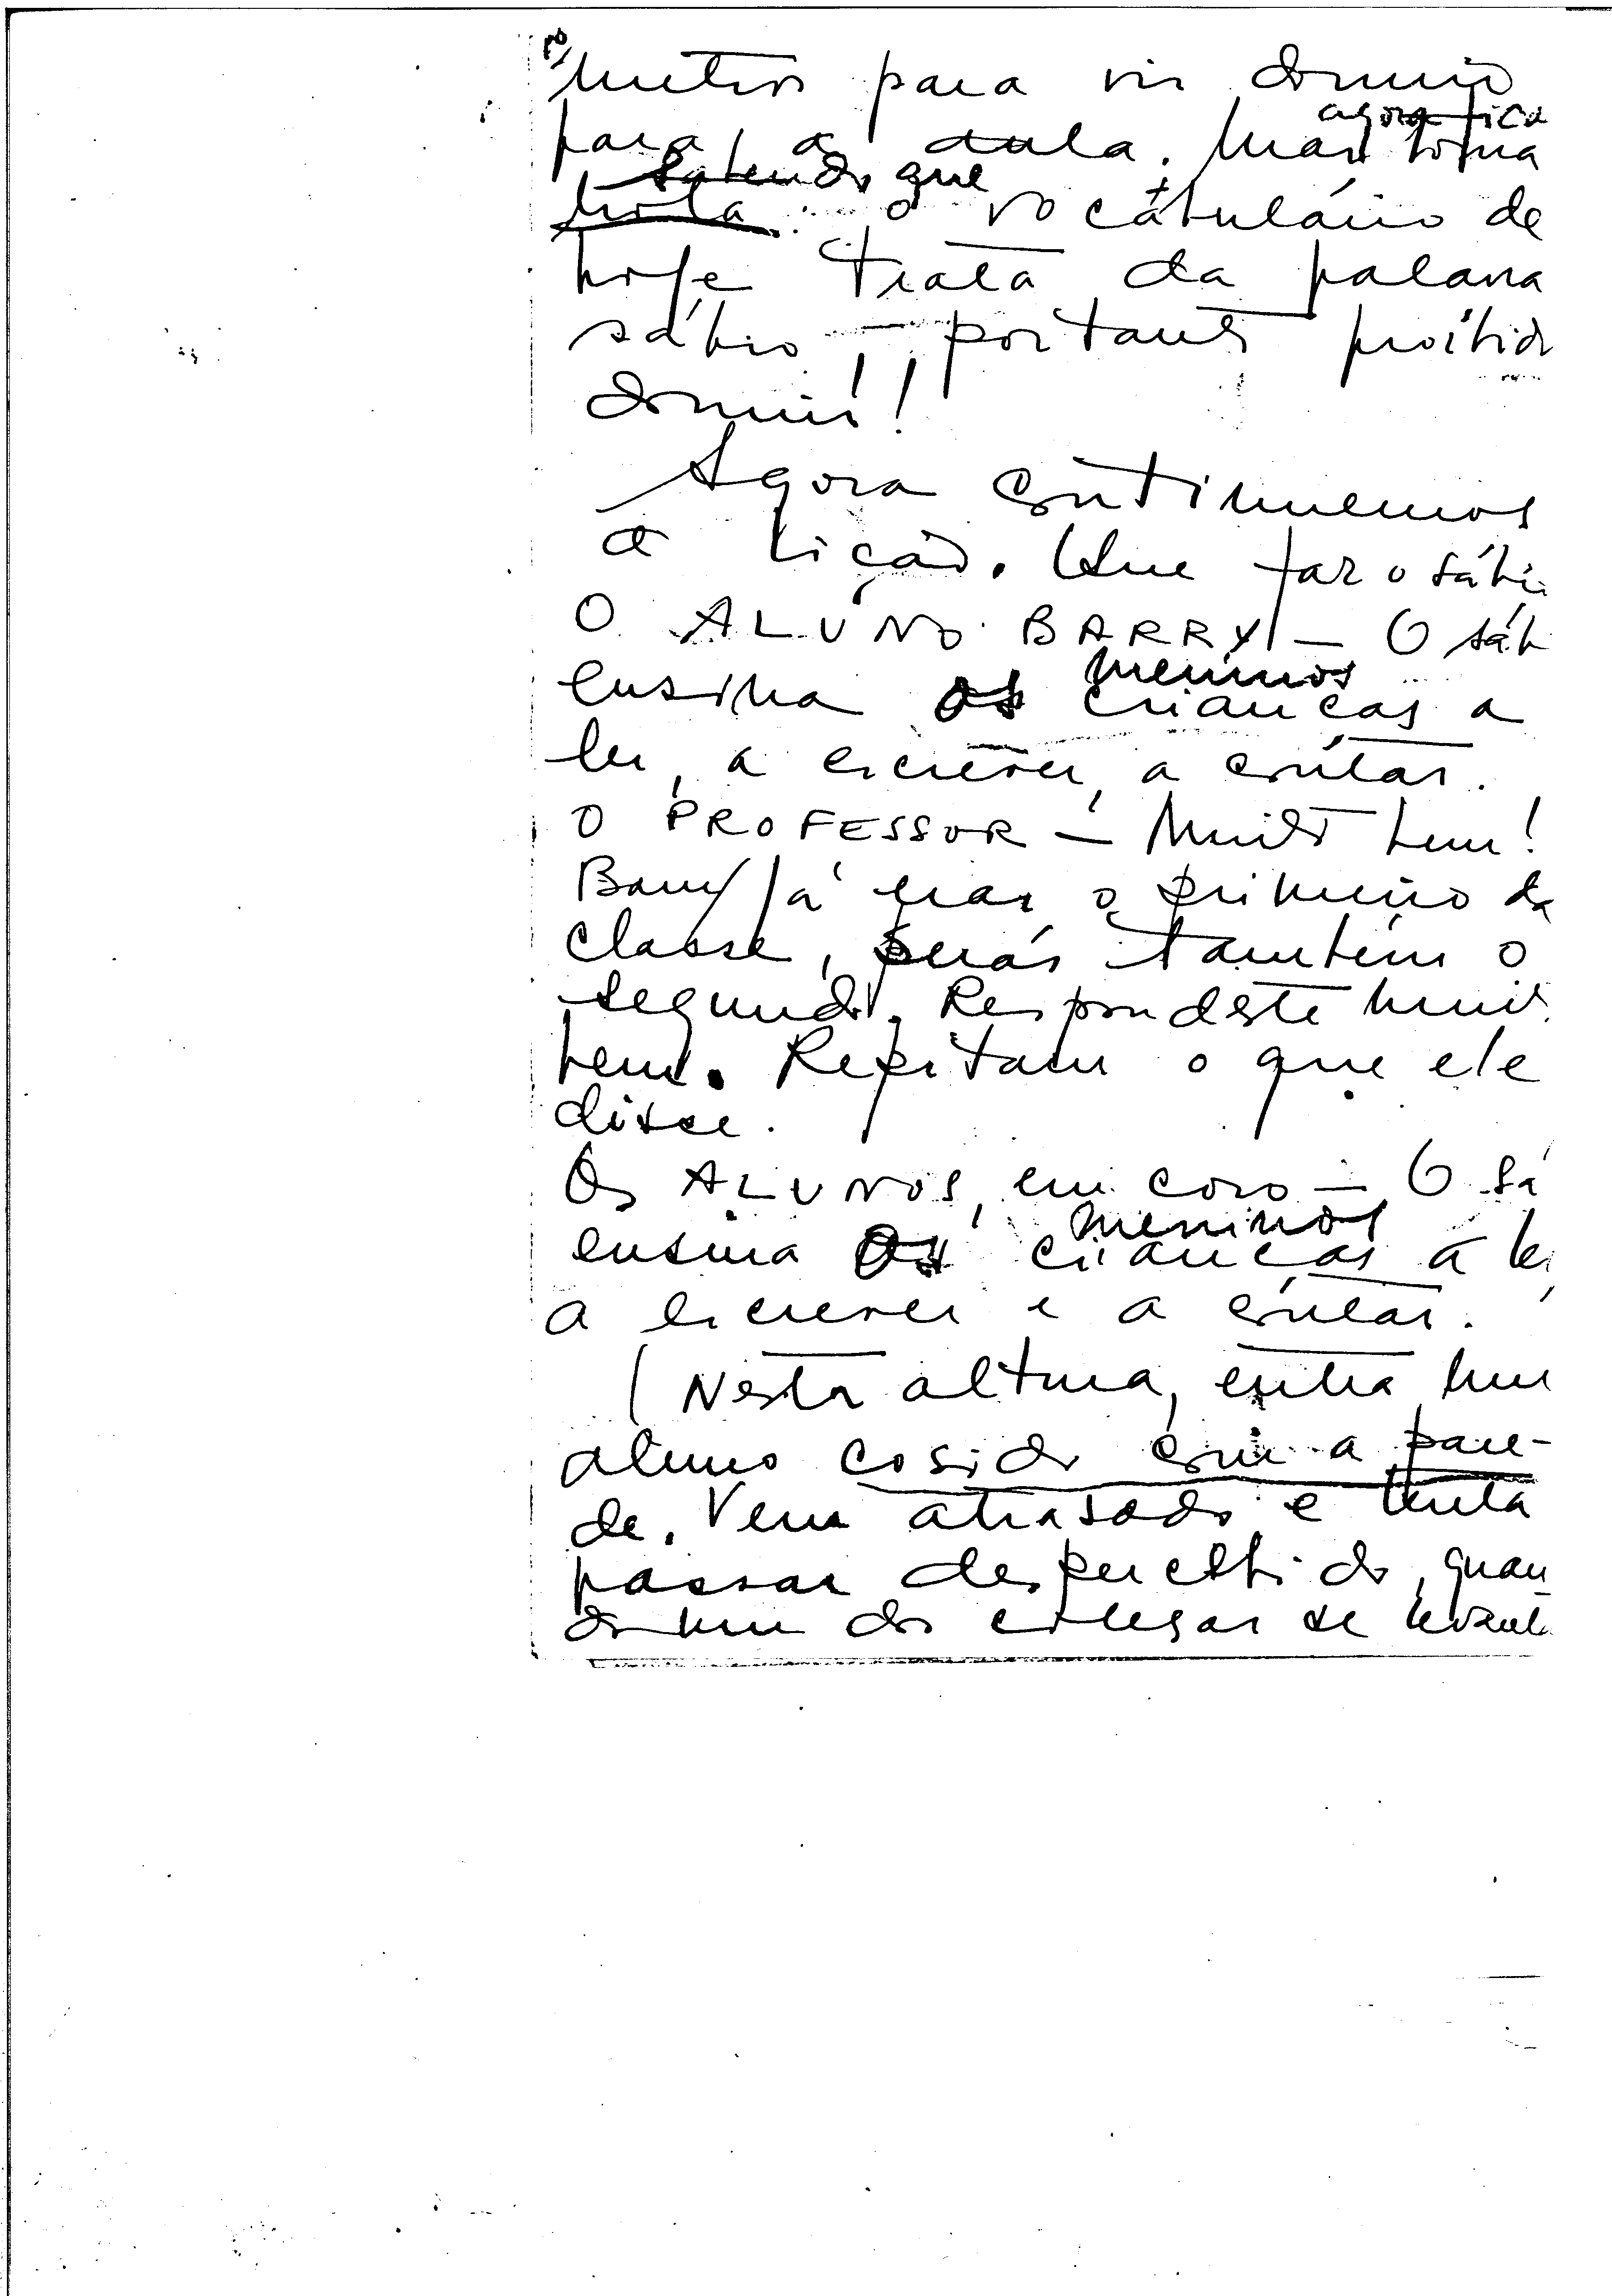 metros para vir dormir
agora fica
para a aula. Mas toma
sabendo que
nota: o vocabulário de
hoje trata da palavra
sábio, portanto proibido
dormir!
Agora continuemos
a lição. Que faz o sábi
O ALUNO BARRY — O sáb
meninos
ensina os crianças a
ler, a escrever, a contar.
O PROFESSOR — Muito bem!
Barry já eras o primeiro da
classe, serás também o
segundo. Respondeste muito
bem. Repitam o que ele
disse.
Os ALUNOS, em coro — O sá
meninos
ensina os crianças a ler,
a escrever e a contar.
(Nesta altura, entra um
aluno cosido com a pare-
de. Vem atrasado e tenta
passar despercebido, quan
do um dos colegas se levanta